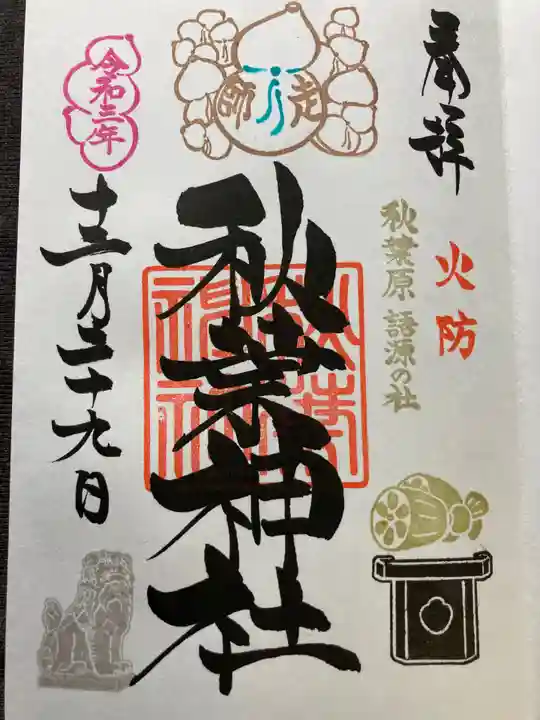 奉拝
火防
秋葉原 語源の社
師走
秋葉神社
令和三年
十二月二十九日